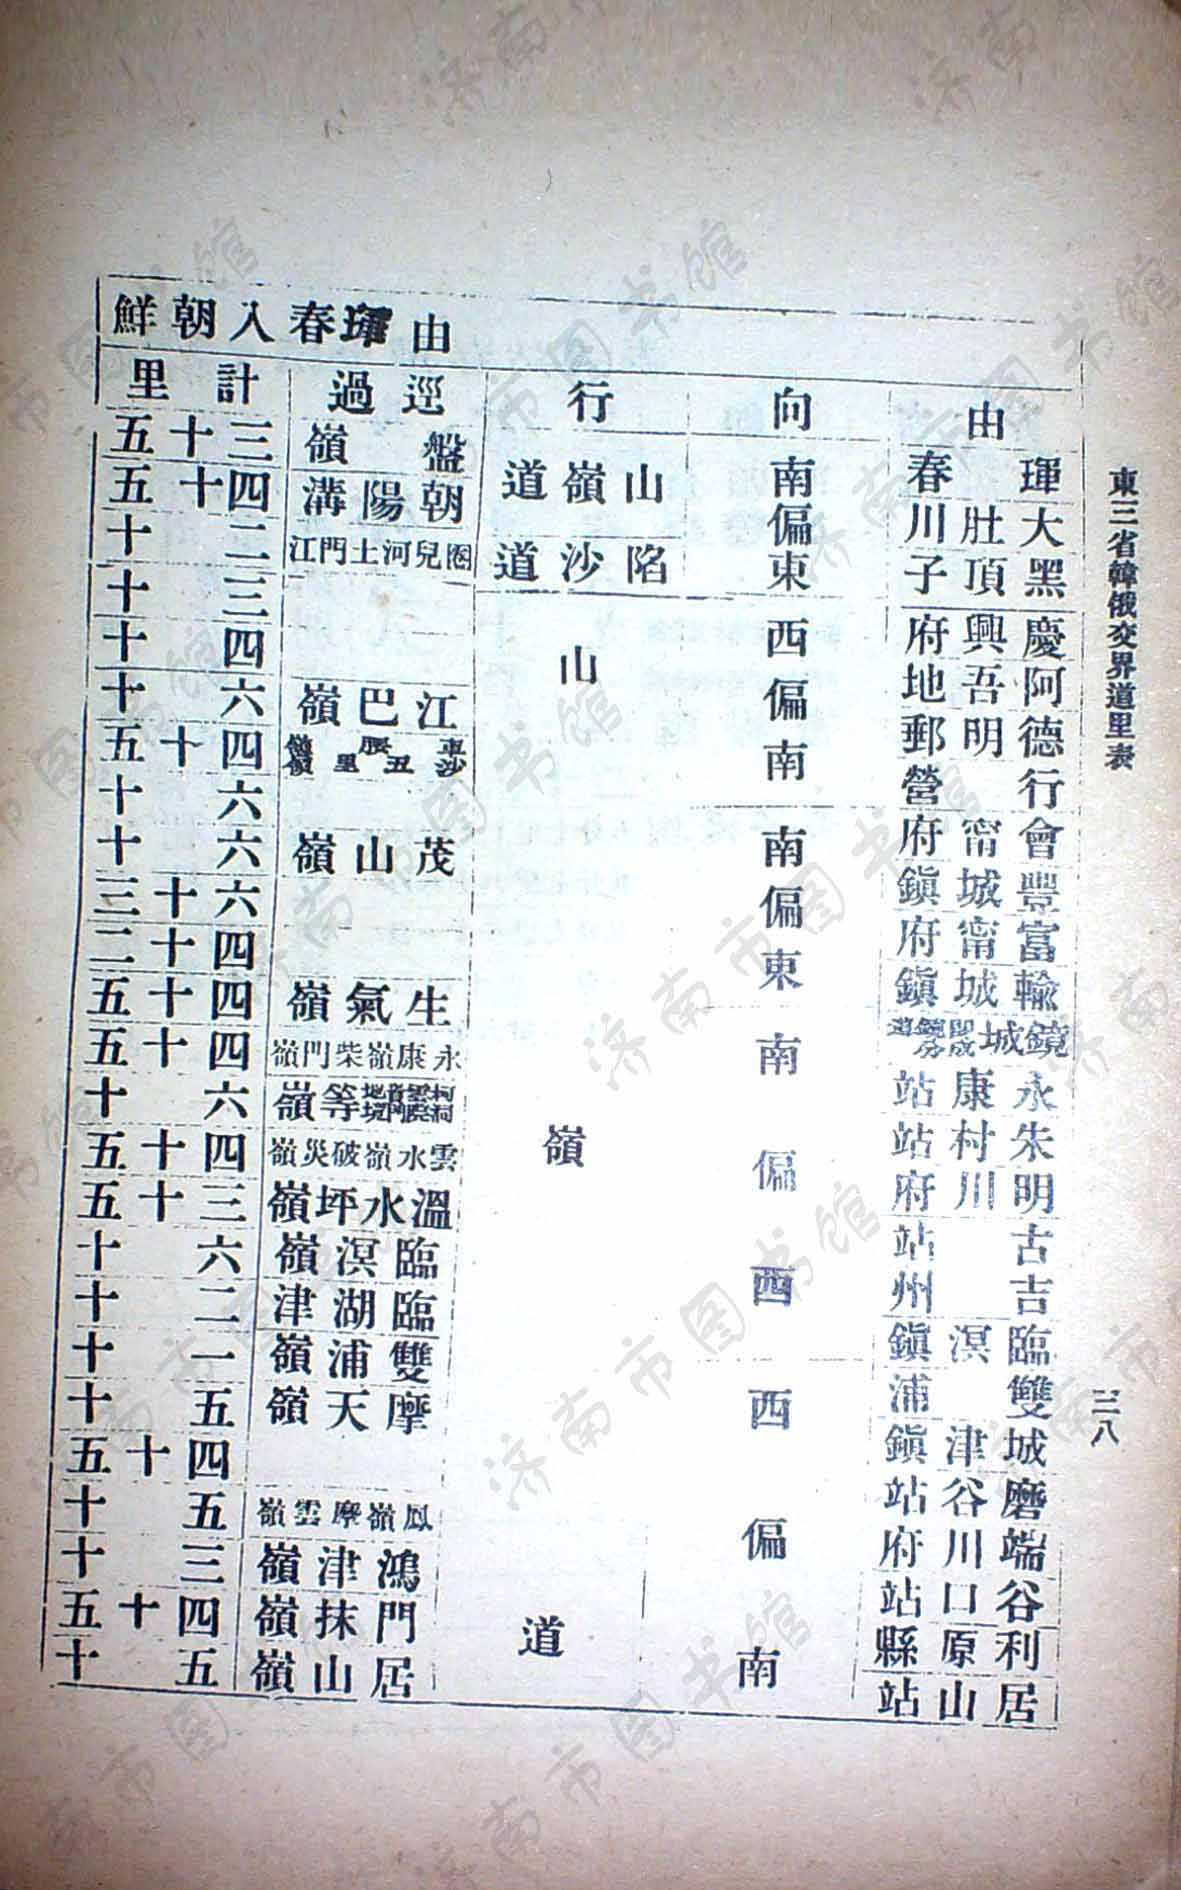 東三省韓俄交界道里表
三八
由琿春入朝鮮
由
琿春
大肚川
黑頂子
慶興府
阿吾地
德明郵
行營
會甯府
豐城鎮
富甯府
輸城鎮
鏡城
永康站
朱村站
明川府
古站
吉州
臨溟鎮
雙浦
城津鎮
磨谷站
端川府
谷口站
利原縣
居山站
向
南偏東
西偏南
南偏東
南偏西
西偏南
行
山嶺道
陷沙道
山嶺道
逕過
盤嶺
朝陽溝
圈兒河土門江
江巴嶺
茂山嶺
生氣嶺
永康嶺柴門嶺
等嶺
雲水嶺破災嶺
溫水坪嶺
臨溟嶺
臨湖津
雙浦嶺
摩天嶺
鳳嶺摩雲嶺
鴻津嶺
門抹嶺
居山嶺
計里
三十五
四十五
二十
三十
四十
六十
四十五
六十
六十
六十三
四十二
四十五
四十五
六十
四十五
三十五
六十
二十
一十
五十
四十五
五十
三十
四十五
五十
济南市图书馆